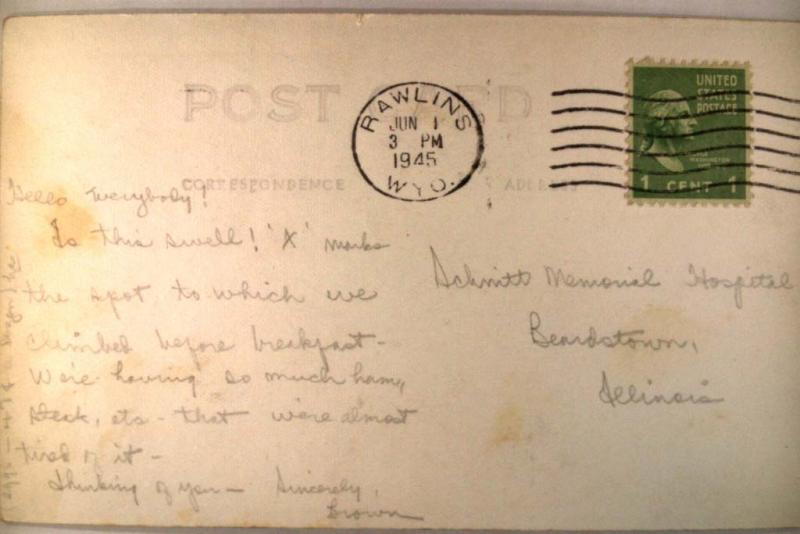 POST CARD
RAWLINS
JUN 1
3 PM
1945
WYO.
UNITED
STATES
POSTAGE
WASHINGTON
1 CENT 1
CORRESPONDENCE
ADDRESS
Hello Everybody!
Is this swell! 'X' marks
the spot to which we
climbed before breakfast -
We're having so much ham,
steak, etc - that we're almost
tired of it -
Thinking of you - Sincerely,
Brown
Schmitt Memorial Hospital
Beardstown,
Illinois